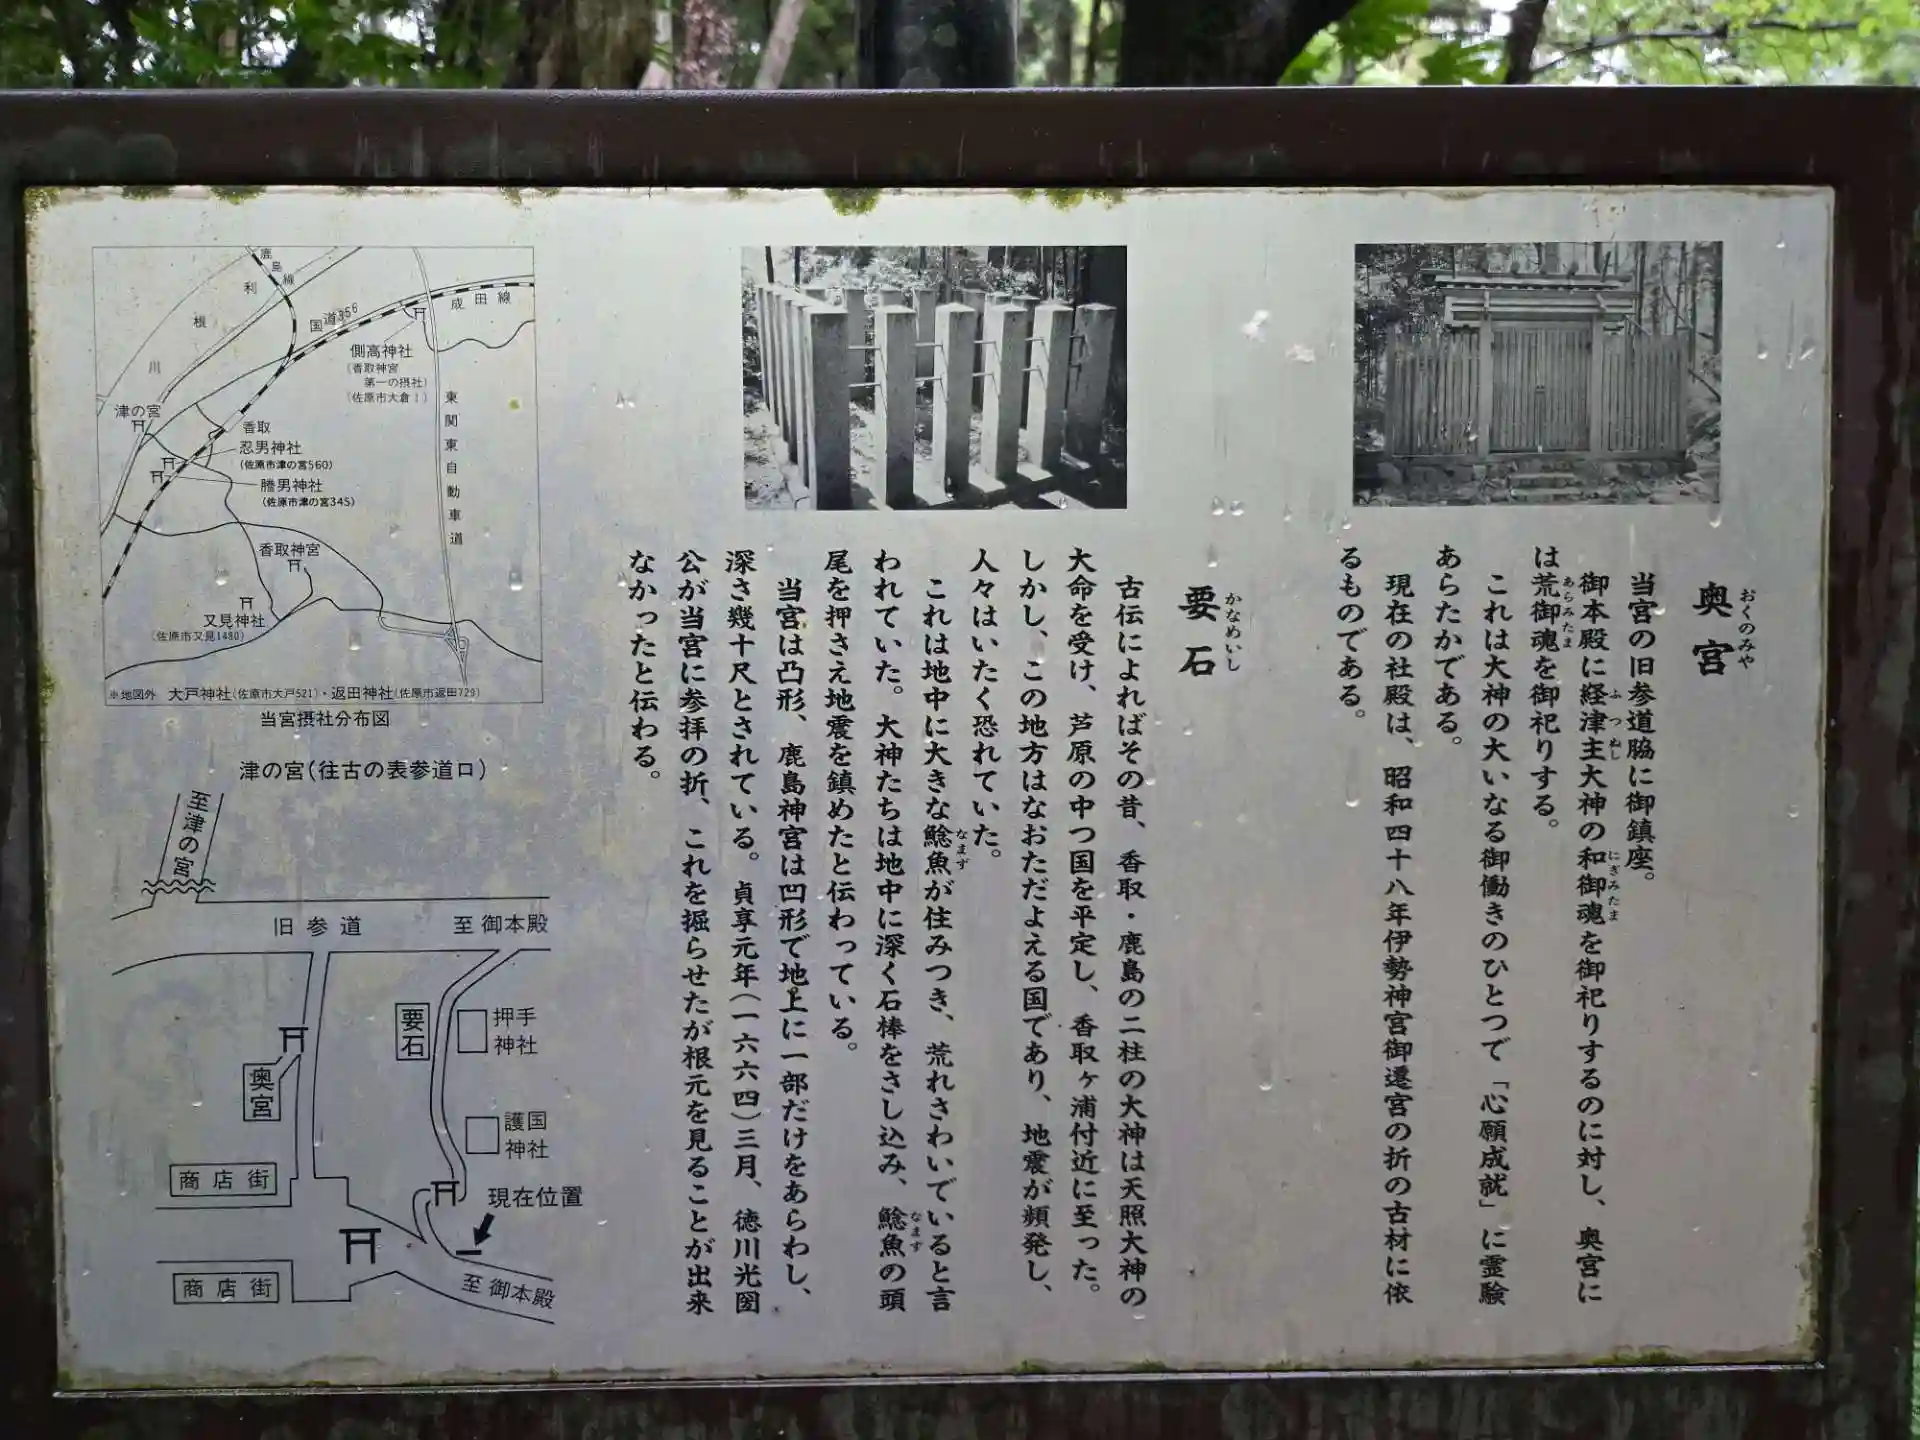 奥宮
おくのみや
当宮の旧参道脇に御鎮座。
御本殿に経津主大神の和御魂を御祀りするのに対し、奥宮に
ふつぬし
にぎみたま
は荒御魂を御祀りする。
あらみたま
これは大神の大いなる御働きのひとつで「心願成就」に霊験
あらたかである。
現在の社殿は、昭和四十八年伊勢神宮御遷宮の折の古材に依
るものである。
要石
かなめいし
古伝によればその昔、香取・鹿島の二柱の大神は天照大神の
大命を受け、芦原の中つ国を平定し、香取ヶ浦付近に至った。
しかし、この地方はなおただよえる国であり、地震が頻発し、
人々はいたく恐れていた。
これは地中に大きな鯰魚が住みつき、荒れさわいでいると言
なまず
われていた。大神たちは地中に深く石棒をさし込み、鯰魚の頭
なまず
尾を押さえ地震を鎮めたと伝わっている。
当宮は凸形、鹿島神宮は凹形で地上に一部だけをあらわし、
深さ幾十尺とされている。貞享元年(一六六四)三月、徳川光圀
公が当宮に参拝の折、これを掘らせたが根元を見ることが出来
なかったと伝わる。
鹿島線
利根川
国道356
成田線
側高神社
(香取神宮
第一の摂社)
(佐原市大倉1)
東関東自動車道
津の宮
香取
忍男神社
(佐原市津の宮560)
膽男神社
(佐原市津の宮345)
香取神宮
又見神社
(佐原市又見1480)
※地図外 大戸神社(佐原市大戸521)・返田神社(佐原市返田729)
当宮摂社分布図
津の宮(往古の表参道口)
至津の宮
旧参道
至御本殿
要石
押手
神社
奥宮
護国
神社
商店街
現在位置
商店街
至御本殿